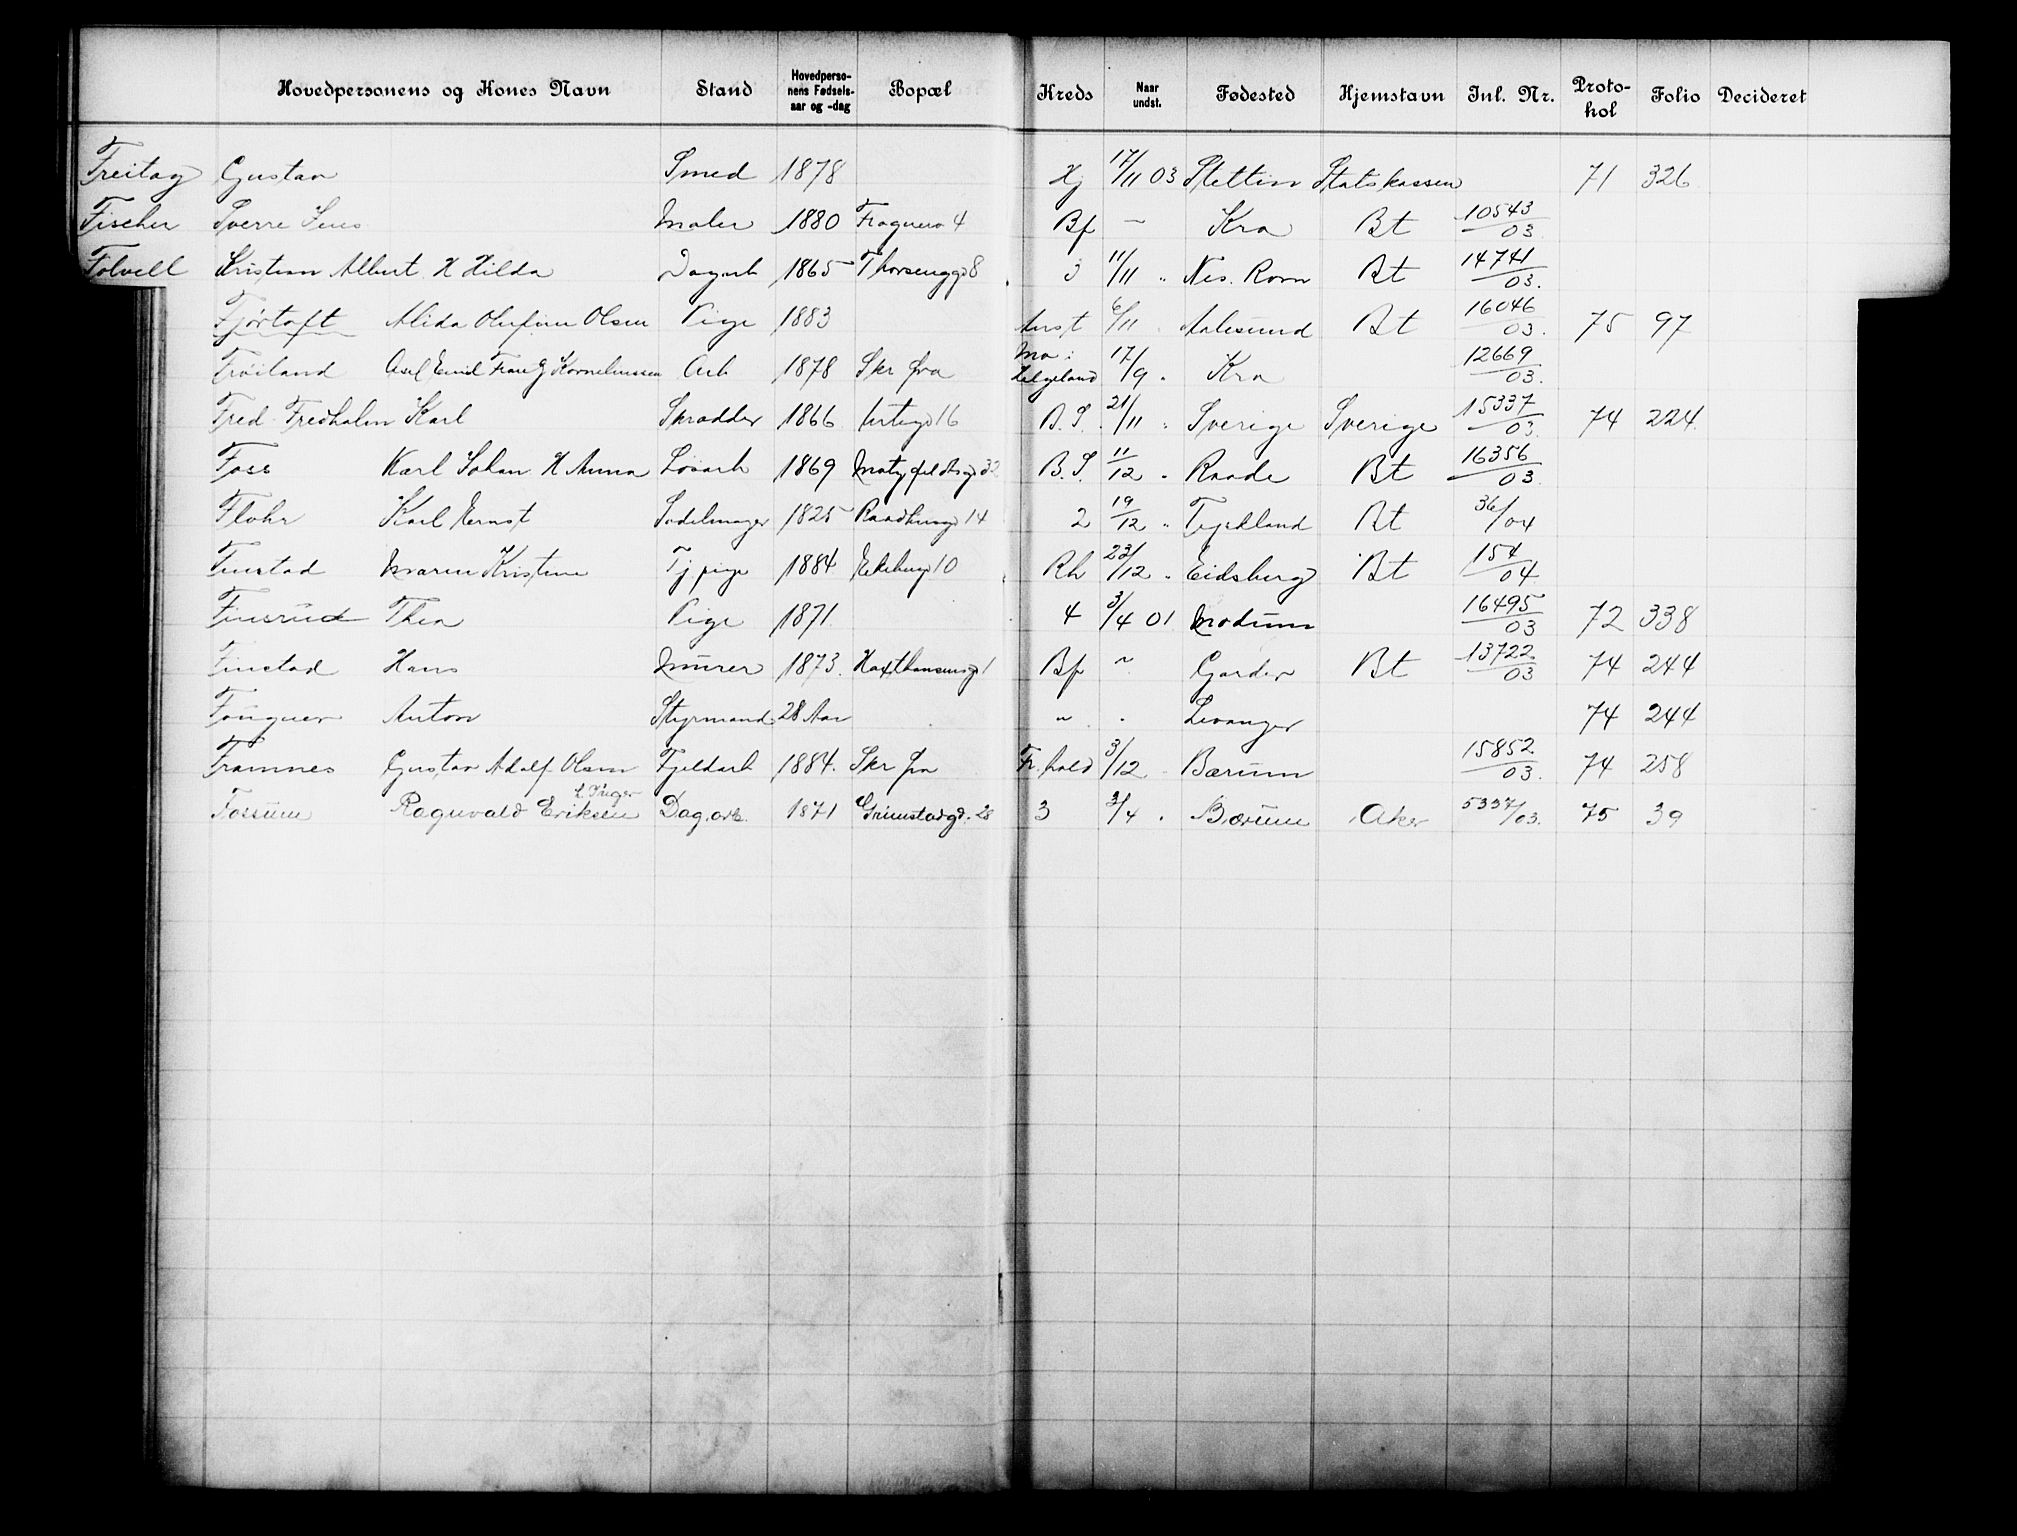 Hovedpersonens og Kones Navn Stand Hovedperso-nens Fødsels-aar og -dag Bopæl Kreds Naar undst. Fødested Hjemstavn Inl. Nr. Proto-kol Folio Decideret
Freitag Gustav Smed 1878 Hj 17/11 03 Stettin Statskassen 71 326
Fischer Sverre Jens Maler 1880 Fragnerv 4 Bf " Kra Bt 10543/03
Folvell Kristian Albert H Hilda Dagarb 1865 Thorsenggd 8 3 11/11 " Nes. Rom Bt 14741/03.
Fjørtoft Alida Olufine Olsen Pige 1883 Anst 6/11 Aalesund Bt 16046/03. 75 97
Frøiland Axel Emil Fran G Korneliussen Arb 1878 Skr fra Mo i Helgeland 17/9 " Kra 12669/03.
Fred-Fredholm Karl Skrædder 1866 Urtegd 16 B.S. 21/11 " Sverige Sverige 15337/03. 74 224.
Foss Karl Johan H Anna Løsarb 1869 B.S. 11/12 " Raade Bt 16356/03.
Flohr Karl Ernst Sadelmager 1825 Raadhusgd 14 2 19/12 " Tyskland Bt 36/04
Finstad Maren Kristine Tj pige 1884 Ekebergd 10 Rh 23/12 " Eidsberg Bt 154/04
Finsrud Thea Pige 1871. 4 3/4 01 Modum 16495/03 72 338
Finstad Hans Murer 1873. Haxthausensgd 1 Bf " Garder Bt 13722/03 74 244
Fougner Anton Styrmand 28 Aar " " Levanger 74 244
Framnes Gustav Adolf Olsen Fjeldarb 1884. Skr fra Fr.hald 3/12 Bærum 15852/03. 74 258
Fossum Ragnvald Eriksen h. Inger Dag.arb. 1871 Grimstadgd. 28 3 3/4 " Bærum Aker 5337/03. 75 39